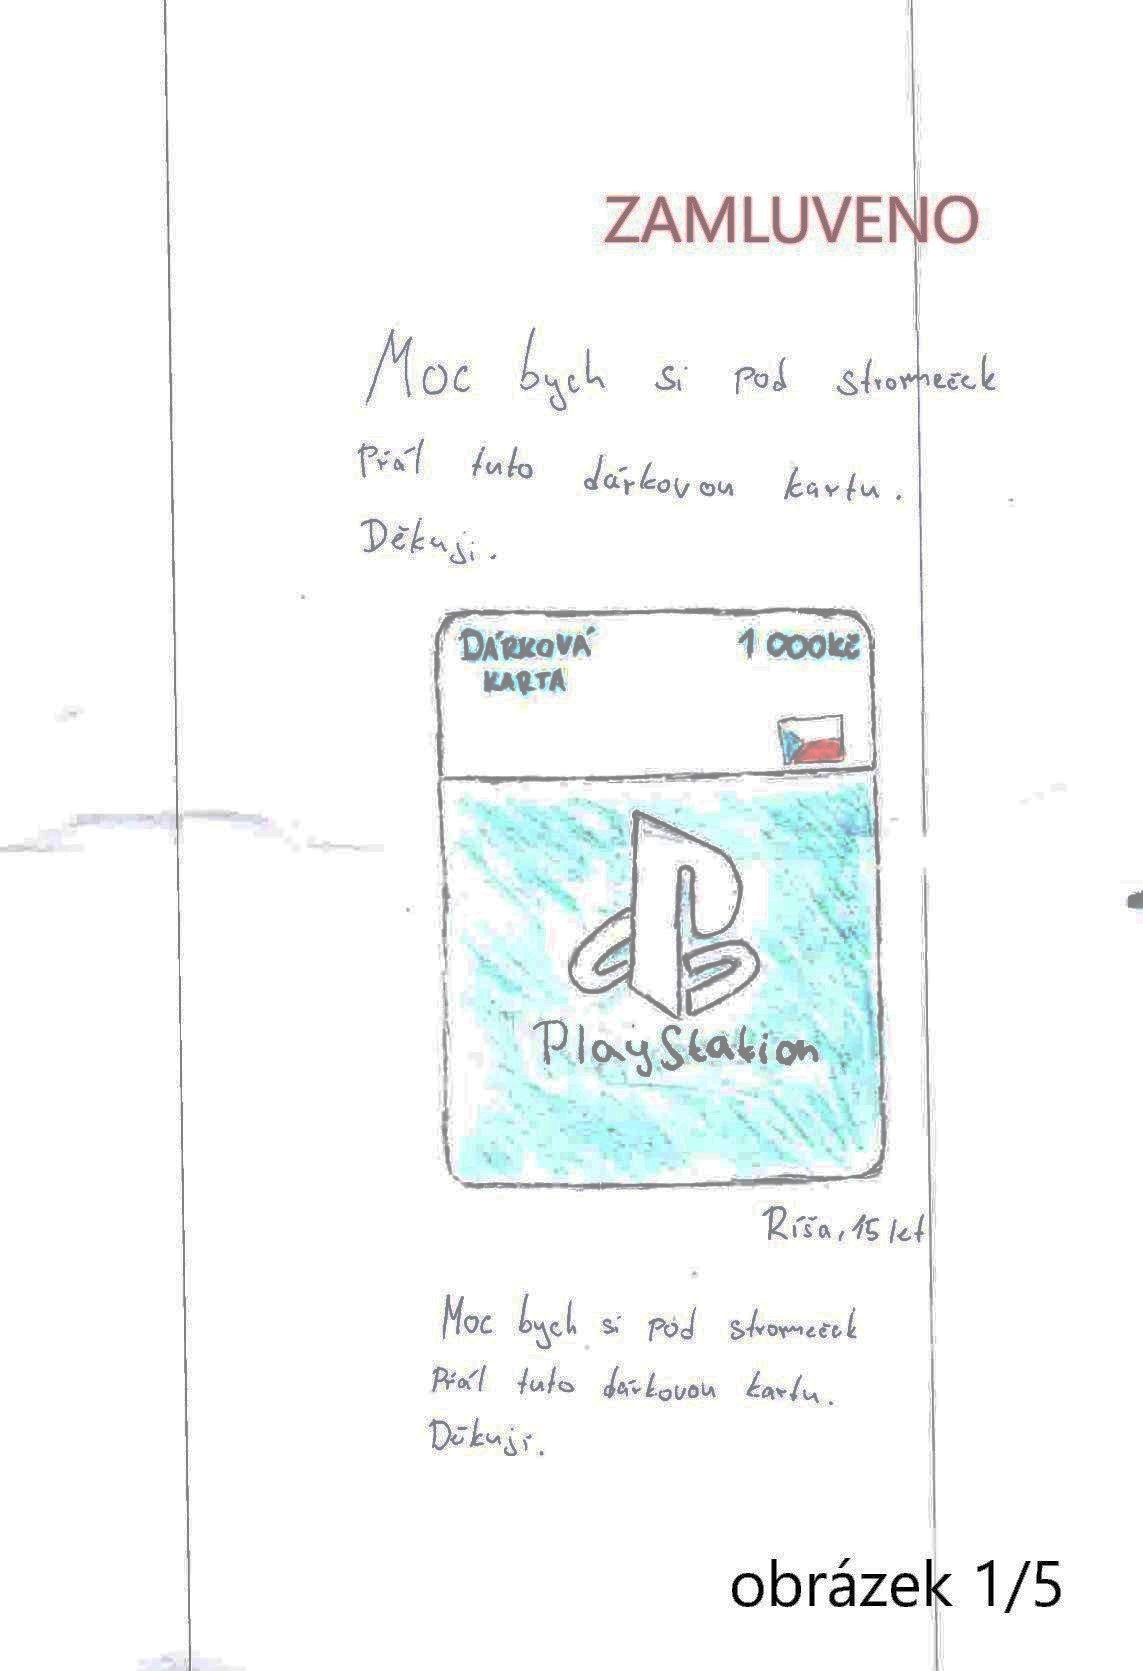 ZAMLUVENO
Moc bych si pod stromeček
Přál tuto dárkovou kartu.
Děkuji.
DÁRKOVÁ
KARTA
1 000Kč
PlayStation
Ríša, 15 let
Moc bych si pod stromeček
Přál tuto dárkovou kartu.
Děkuji.
obrázek 1/5